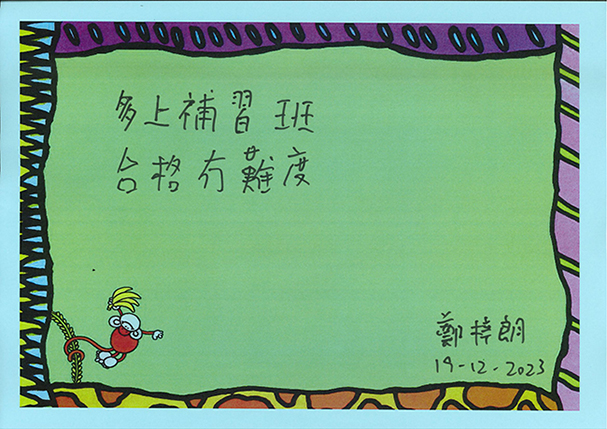 多上補習班
合格冇難度
鄭梓朗
19-12-2023